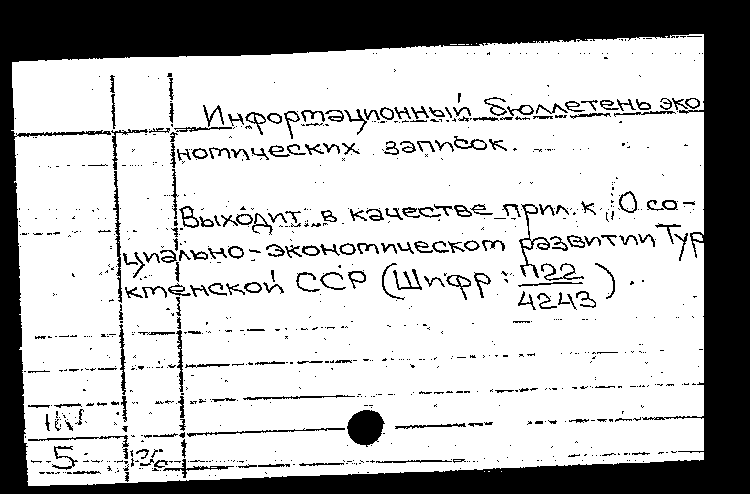 Информационный бюллетень эко
номических записок.
Выходит в качестве прил. к „О со-
циально-экономическом развитии Тур
кменской ССР (Шифр: П22
4243) .
5 136